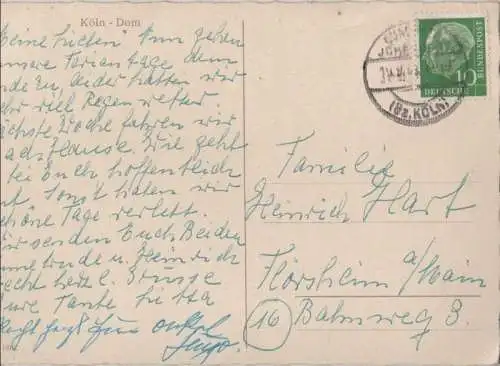 Köln - Dom
Meine Lieben! Nun gehen
unsere Ferientage dem
Ende zu, leider hatten wir
sehr viel Regenwetter.
nächste Woche fahren wir
nach Hause. Wie geht
es Euch hoffentlich
gut. Sonst haben wir
schöne Tage verlebt.
Wir senden Euch Beiden
u. Heinrich
recht herzl. Grüsse
Eure Tante
Onkel
DEUTSCHE
BUNDESPOST
10
(Bz. KÖLN)
Familie
Heinrich Hart
Flörsheim a/Main
16 Bahnweg 3.